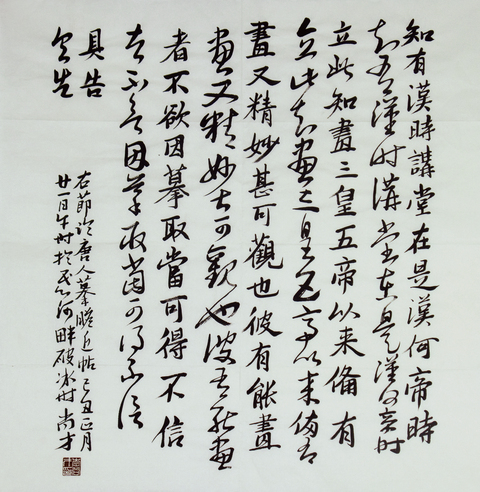 知有漢時講堂在是漢何帝時
知有漢時講堂在是漢何帝時
立此知畫三皇五帝以来備有
立此知畫三皇五帝以来備有
畫又精妙甚可觀也彼有能畫
畫又精妙甚可觀也彼有能畫
者不欲因摹取當可得不信
者不欲因摹取當可得不信
具告
具告
右節臨唐人摹瞻近帖己丑正月
廿一日午時於河畔破冰時尚才